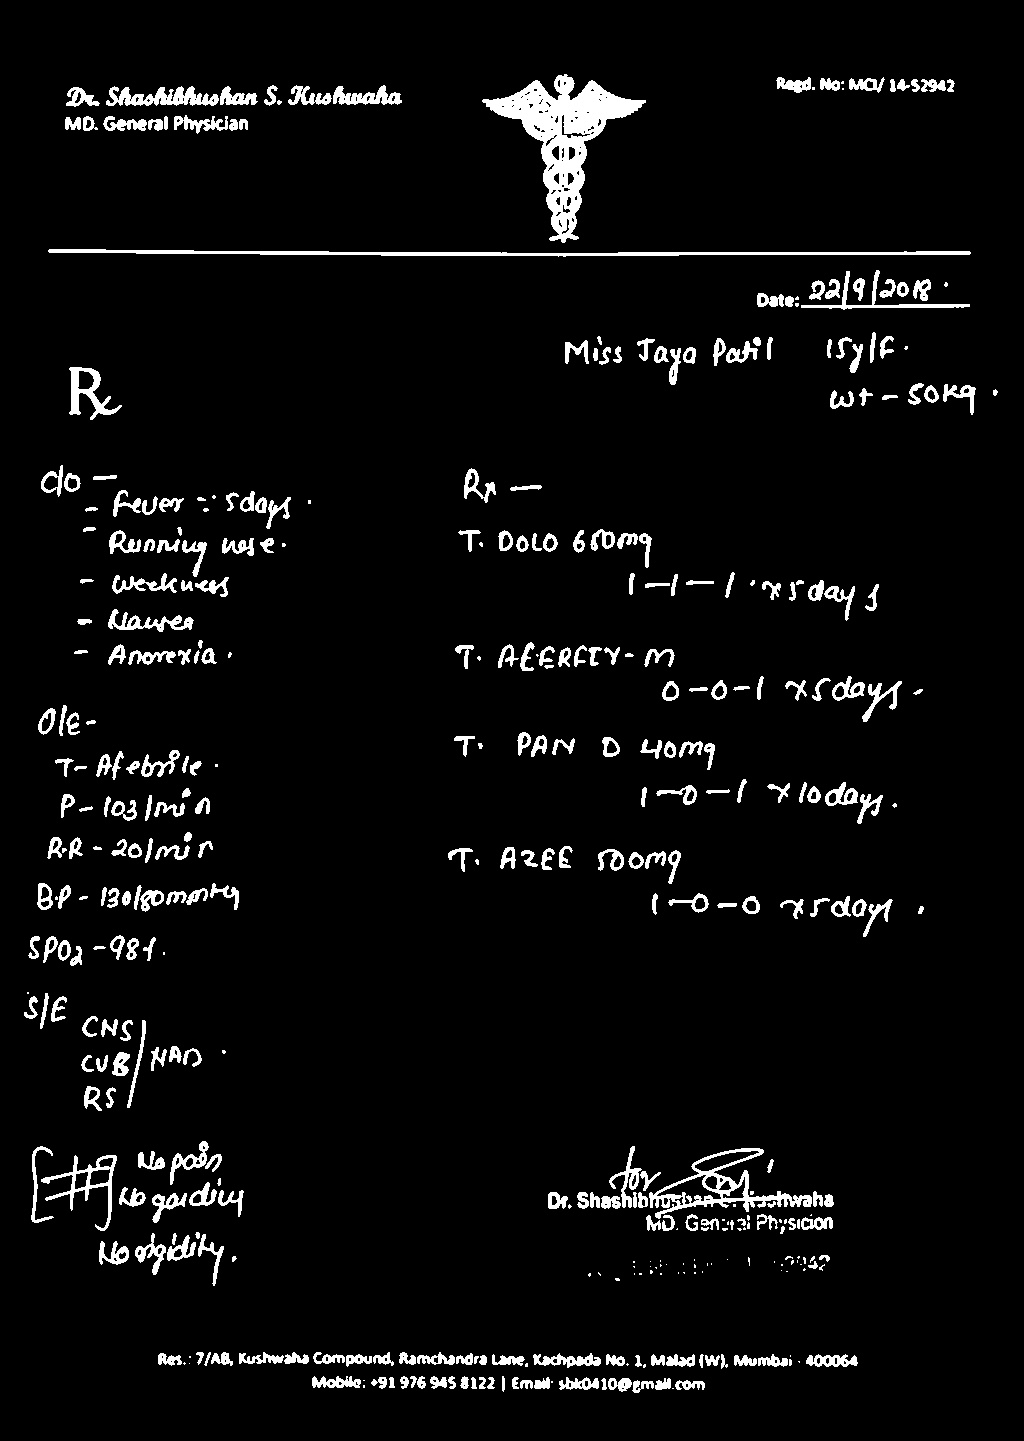 Dr. Shashibhushan S. Kushwaha
MD. General Physician
Regd. No: MCI/ 14-52942
Date: 22/9/2018
Miss Jaya Patil 15y/F.
wt - 50kg.
Rx
c/o -
- Fever ∵ 5days.
- Running nose.
- Weekness
- Nausea
- Anorexia.
O/E-
T- Afebrile.
P- 103/min
R.R - 20/min
B.P - 130/80mmHg
SPO2 -98%.
S/E
CNS
CVS NAD.
RS
No pain
No garding
No rigidity.
Rx -
T. DOLO 650mg
1-1-1 x 5days
T. -M
0-0-1 x5days.
T. PAN D 40mg
1-0-1 x 10days.
T. AZEE 500mg
1-0-0 x 5days.
for
Dr. Shashibhushan S. Kushwaha
MD. General Physician
52942
Res.: 7/AB, Kushwaha Compound, Ramchandra Lane, Kachpada No. 1, Malad (W), Mumbai - 400064
Mobile: +91 976 945 8122 | Email: sbk0410@gmail.com